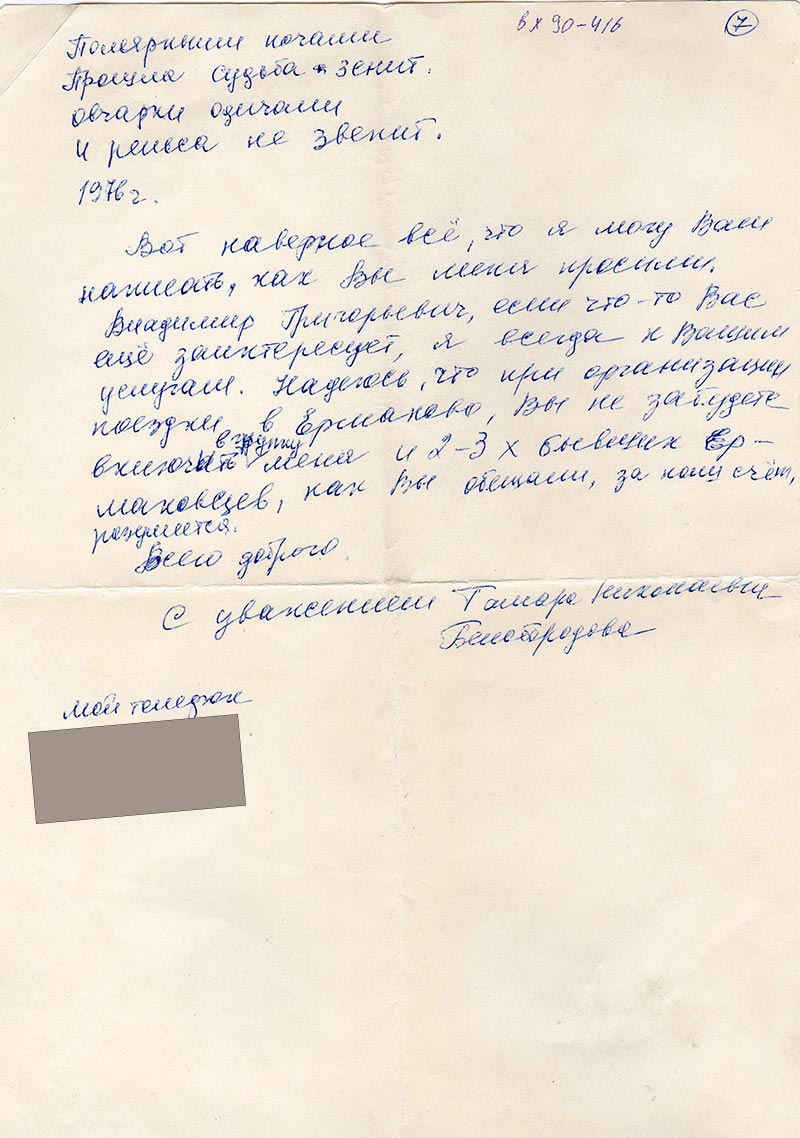 вх 90-416
7
Полярными ночами
Прошла судьба зенит.
овчарки одичали
И рельса не звенит.
1976 г.
Вот наверное всё, что я могу Вам
написать, как Вы меня просили.
Владимир Григорьевич, если что-то Вас
ещё заинтересует, я всегда к Вашим
услугам. Надеюсь, что при организации
поездки в Ермаково, Вы не забудете
в группу
включить меня и 2-3 х бывших Ер-
маковцев, как Вы обещали, за наш счёт,
разумеется.
Всего доброго.
С уважением Тамара Николаевна
Белобородова
Мой телефон